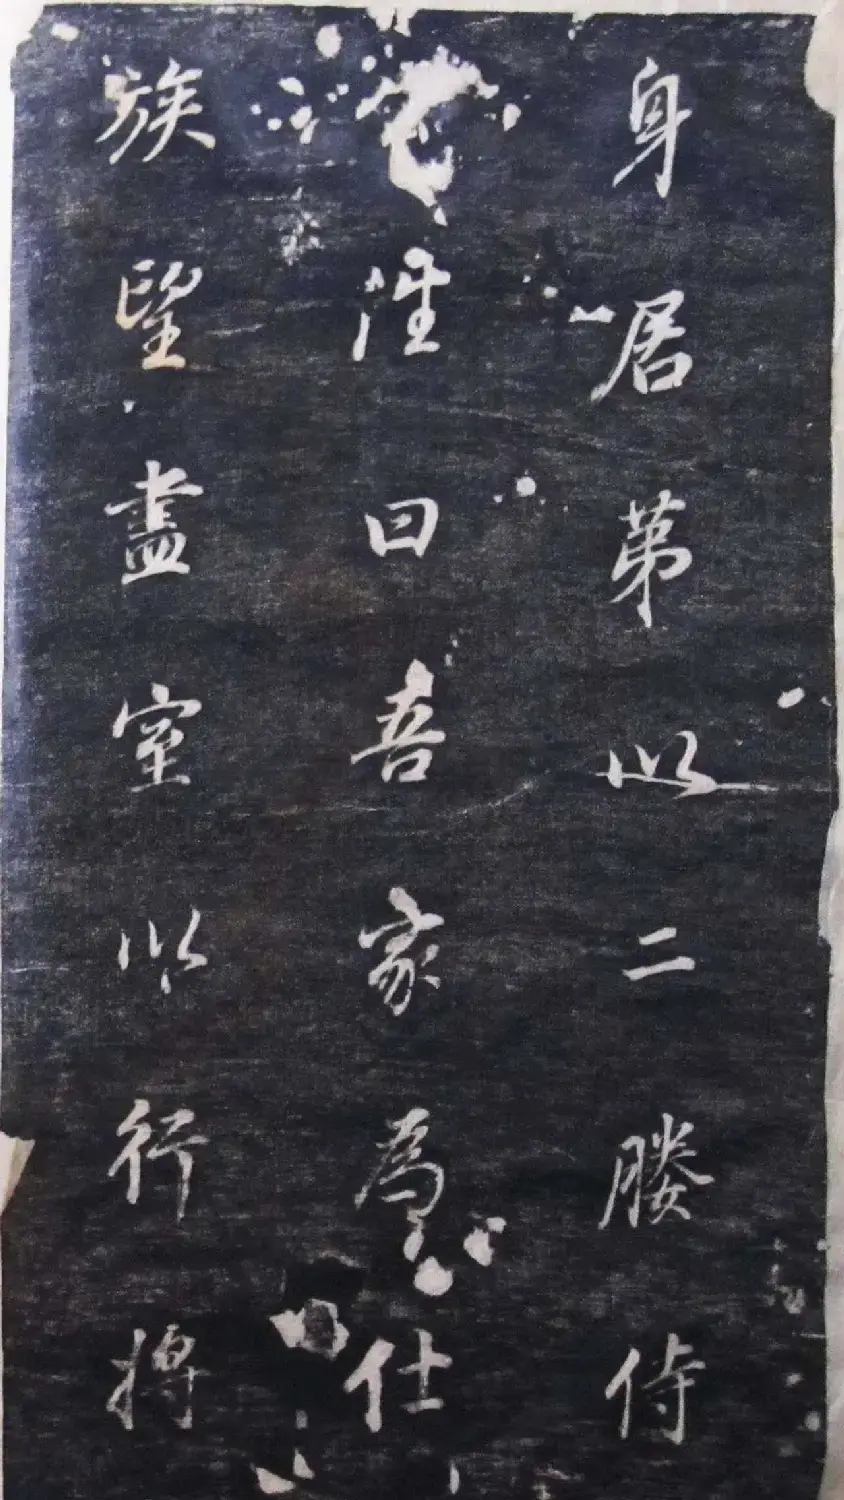 身居第以二媵侍
淮曰吾家为仕
族望尽室以行将